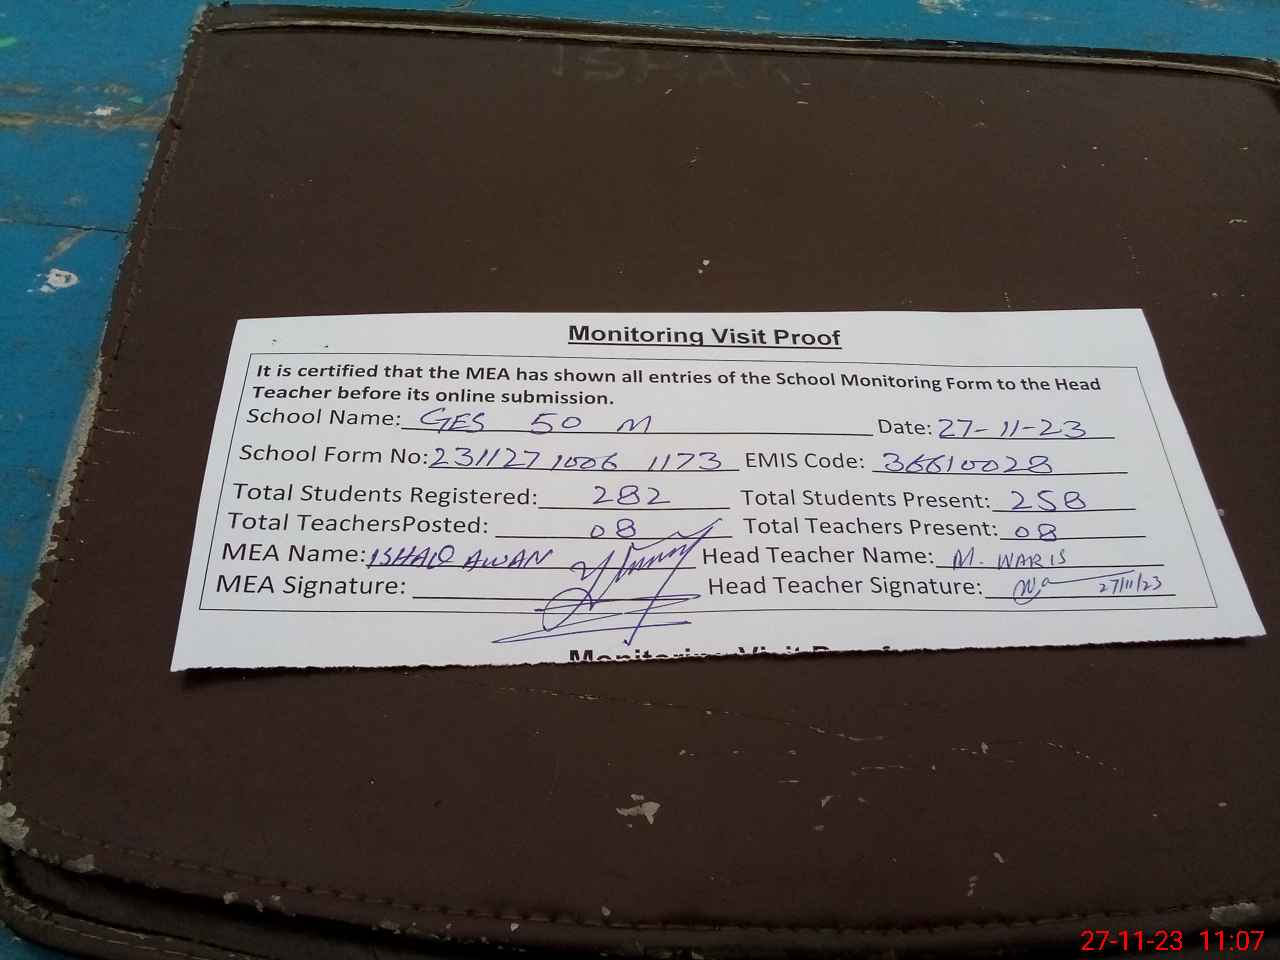 Monitoring Visit Proof
It is certified that the MEA has shown all entries of the School Monitoring Form to the Head
Teacher before its online submission.
School Name: GES 50 M Date: 27-11-23
School Form No: 231127 1006 1173 EMIS Code: 36610028
Total Students Registered: 282 Total Students Present: 258
Total TeachersPosted: 08 Total Teachers Present: 08
MEA Name: ISHAQ AWAN Head Teacher Name: M. WARIS
MEA Signature: Head Teacher Signature: 27/11/23
Monitoring Visit Proof
27-11-23 11:07